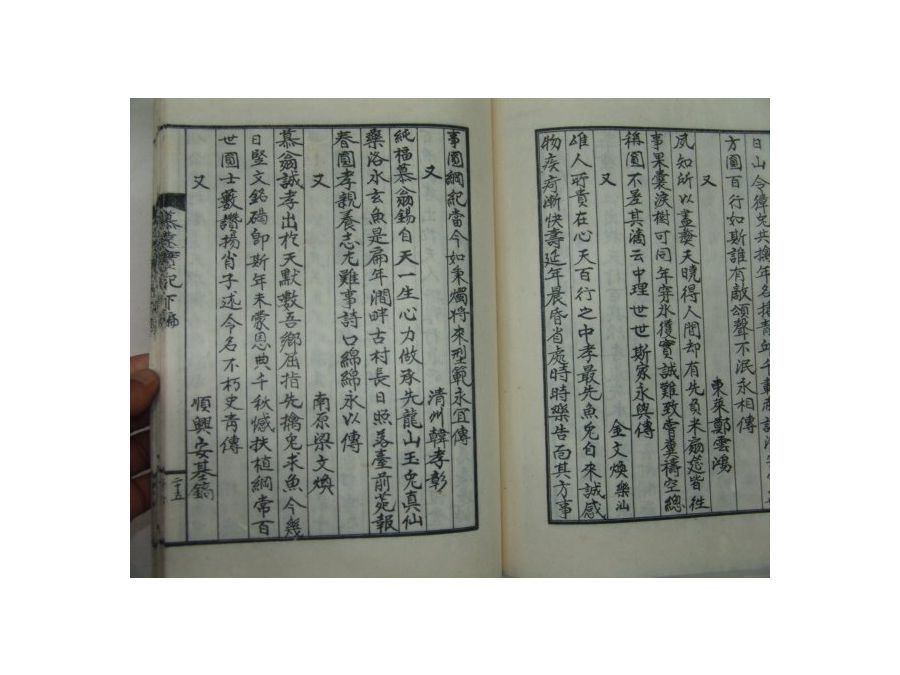 方圓百行如斯誰有敵頌聲不泯永相傳
東萊鄭雲鴻
又
夙知所以盡
天曉得人間却有先負米扇筵皆徃
事果囊淚樹可同年穿氷獲實誠難致嘗糞禱空總
稱圓不差其滴云中理世世斯家永與傳
金文煥 樂汕
又
雄人所貴在心天百行之中孝最先魚兔自來誠感
物疾疴漸快壽延年晨昏省處時時樂告面其方事
事圓綱紀當今如秉燭將來型範永宜傳
清州韓孝彰
又
純福慕翁錫自天一生心力做承先龍山玉兔真仙
藥洛水玄魚是扁年澗畔古村長日照落臺前苑報
春圓孝親養志尤難事詩口綿綿永以傳
南原梁文煥
又
慕翁誠孝出於天默數吾鄉屈指先擒兔求魚今幾
日竪文銘碣卽斯年未蒙恩典千秋憾扶植綱常百
世圓士藪讚揚肖子述令名不朽史靑傳
又
順興安基鎬
二十五